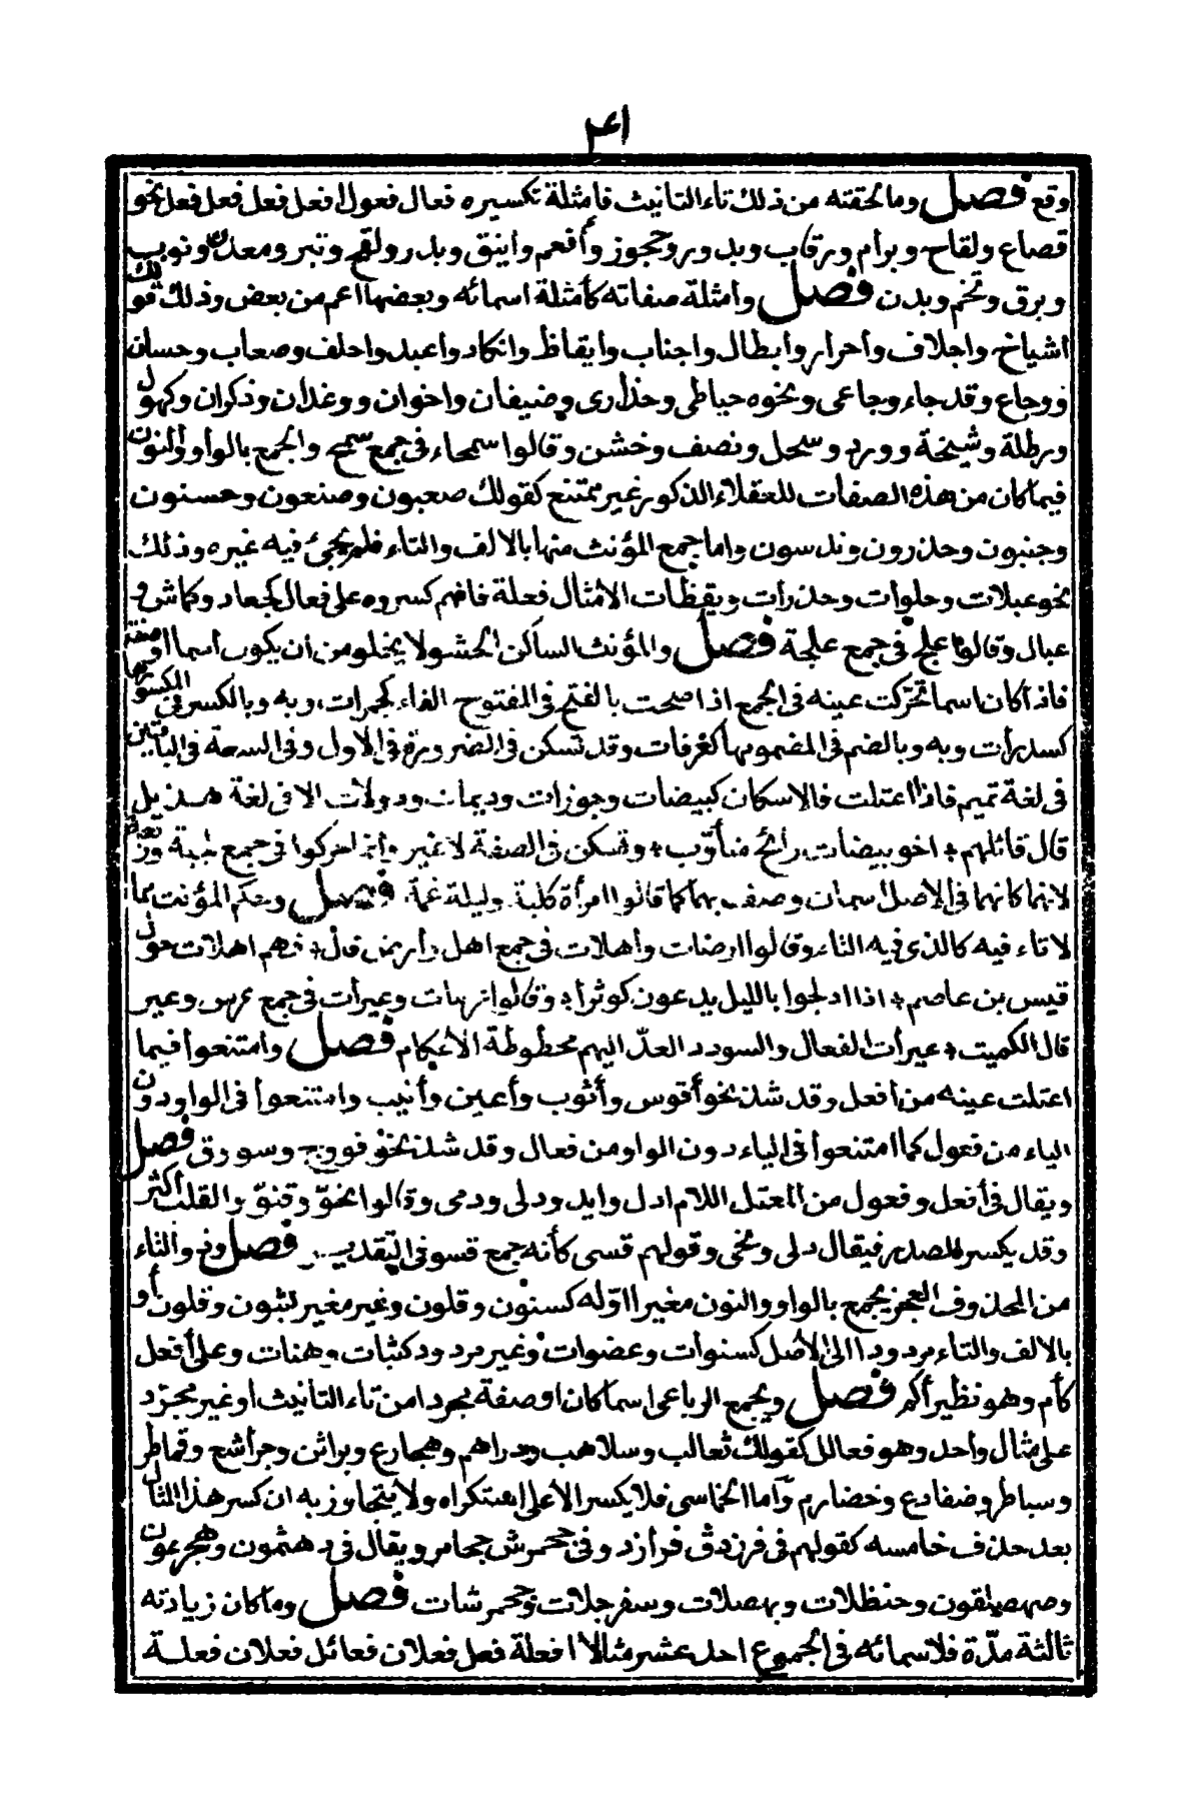 ٤١
وقع فصل وما لحقته من ذلك تاء التانيث فامثلة تكسيره فعال فعول افعل فعل فعل فعل نحو
قصاع ولقاح وبرام ورقاب وبدور وحجوز وأنعم واينق وبدر ولقح وتير ومعد ونوب
وبرق وتخم وبدن فصل وامثلة صفاته كأمثلة اسمائه وبعضها اعم من بعض وذلك قولك
اشياخ واجلاف واحرار وابطال واجناب وايقاظ وانكاد واعبد واجلف وصعاب وحسان
ووجاع وقد جاء وجاعى ونحوه حباطى وحذارى وضيفان واخوان ووغدان وذكران وكهول
ورطلة وشيخة وورد وسحل ونصف وخشن وقالوا سمحاء فى جمع سمح والجمع بالواو والنون
فيما كان من هذه الصفات للعقلاء الذكور غير ممتنع كقولك صعبون وصنعون وحسنون
وجنبون وحذرون وندسون واما جمع المؤنث منها بالالف والتاء فلم يجئ فيه غيره وذلك
نحو عبلات وحلوات وحذرات ويقظات الا مثال فعلة فانهم كسروه على فعال كجعاد وكماش و
عبال وقالوا علج فى جمع علجة فصل والمؤنث الساكن الحشو لا يخلو من أن يكون اسما او صفة
فاذا كان اسما تحركت عينه فى الجمع اذا صحت بالفتح فى المفتوح الفاء كجمرات وبه وبالكسر فى المكسورها
كسدرات وبه وبالضم فى المضمومها كغرفات وقد تسكن فى الضرورة فى الاول وفى السعة فى الباقيين
فى لغة تميم فاذا اعتلت فالاسكان كبيضات وجوزات وديمات ودولات الا فى لغة هذيل
قال قائلهم ؞ اخو بيضات رائح متأوب ؞ وتسكن فى الصفة لا غير وانما حركوا فى جمع لجبة وربعة
لانهما كانهما فى الاصل اسمان وصف بهما كما قالوا امرأة كلبة وليلة غمة فصل وحكم المؤنث مما
لا تاء فيه كالذى فيه التاء وقالوا ارضات وأهلات فى جمع اهل وأرض قال ؞ فهم اهلات حول
قيس بن عاصم ؞ اذا ادلجوا بالليل يدعون كوثرا ؞ وقالوا عرسات وعيرات فى جمع عرس وعير
قال الكميت ؞ عيرات الفعال والسودد العد اليهم محطوطة الاعكام فصل وامتنعوا فيما
اعتلت عينه من أفعل وقد شذ نحو أقوس وأثوب وأعين وأنيب وامتنعوا فى الواو دون
الياء من فعول كما امتنعوا فى الياء دون الواو من فعال وقد شذ نحو فووج وسووق فصل
ويقال فى أفعل وفعول من المعتل اللام ادل وايد ودلى ودمى وقالوا نحو وقنو والقلب أكثر
وقد يكسر الصدر فيقال دلى ونحى وقولهم قسى كأنه جمع قسو فى التقدير فصل وذو التاء
من المحذوف العجز يجمع بالواو والنون مغيرا اوله كسنون وقلون وغير مغير كثبون وقلون أو
بالالف والتاء مردودا الى الاصل كسنوات وعضوات وغير مردود كثبات وهنات وعلى أفعل
كأم وهو نظير أكم فصل ويجمع الرباعى اسما كان او صفة مجردا من تاء التانيث او غير مجرد
على مثال واحد وهو فعالل كقولك ثعالب وسلاهب ودراهم وهجارع وبراثن وجراشع وقماطر
وسباطر وضفادع وخضارم وأما الخماسى فلا يكسر الا على استكراه ولا يتجاوز به ان كسر هذا المثال
بعد حذف خامسه كقولهم فى فرزدق فرازد وفى جحمرش جحامر ويقال فى دهثمون وهجرعون
وصهصلقون وحنظلات وبهصلات وسفرجلات وجحمرشات فصل وما كان زيادته
ثالثة مدة فلاسمائه فى الجموع احد عشر مثالا افعلة فعل فعلان فعائل فعلان فعلة